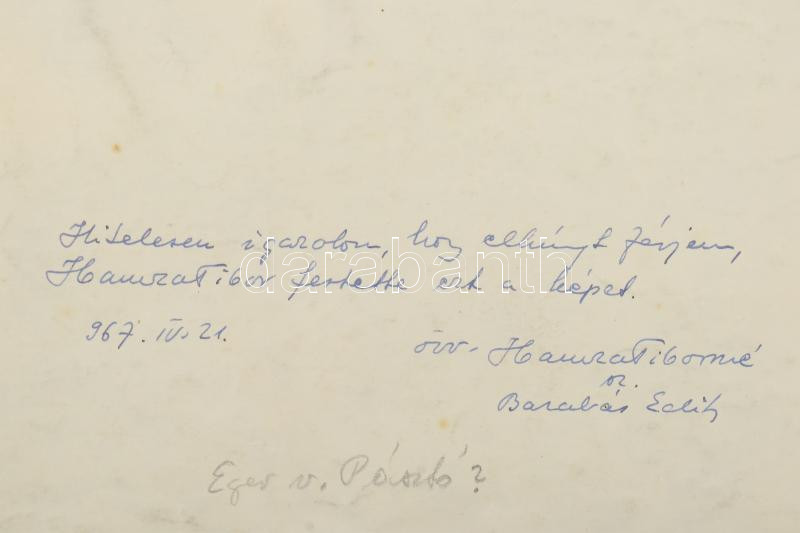 Hitelesen igazolom, hogy elhúnyt férjem,
Hamza Tibor festette ezt a képet.
darabanth
967. IV. 21.
özv. Hamza Tiborné
sz.
Barabás Edith
Eger v. Pásztó?